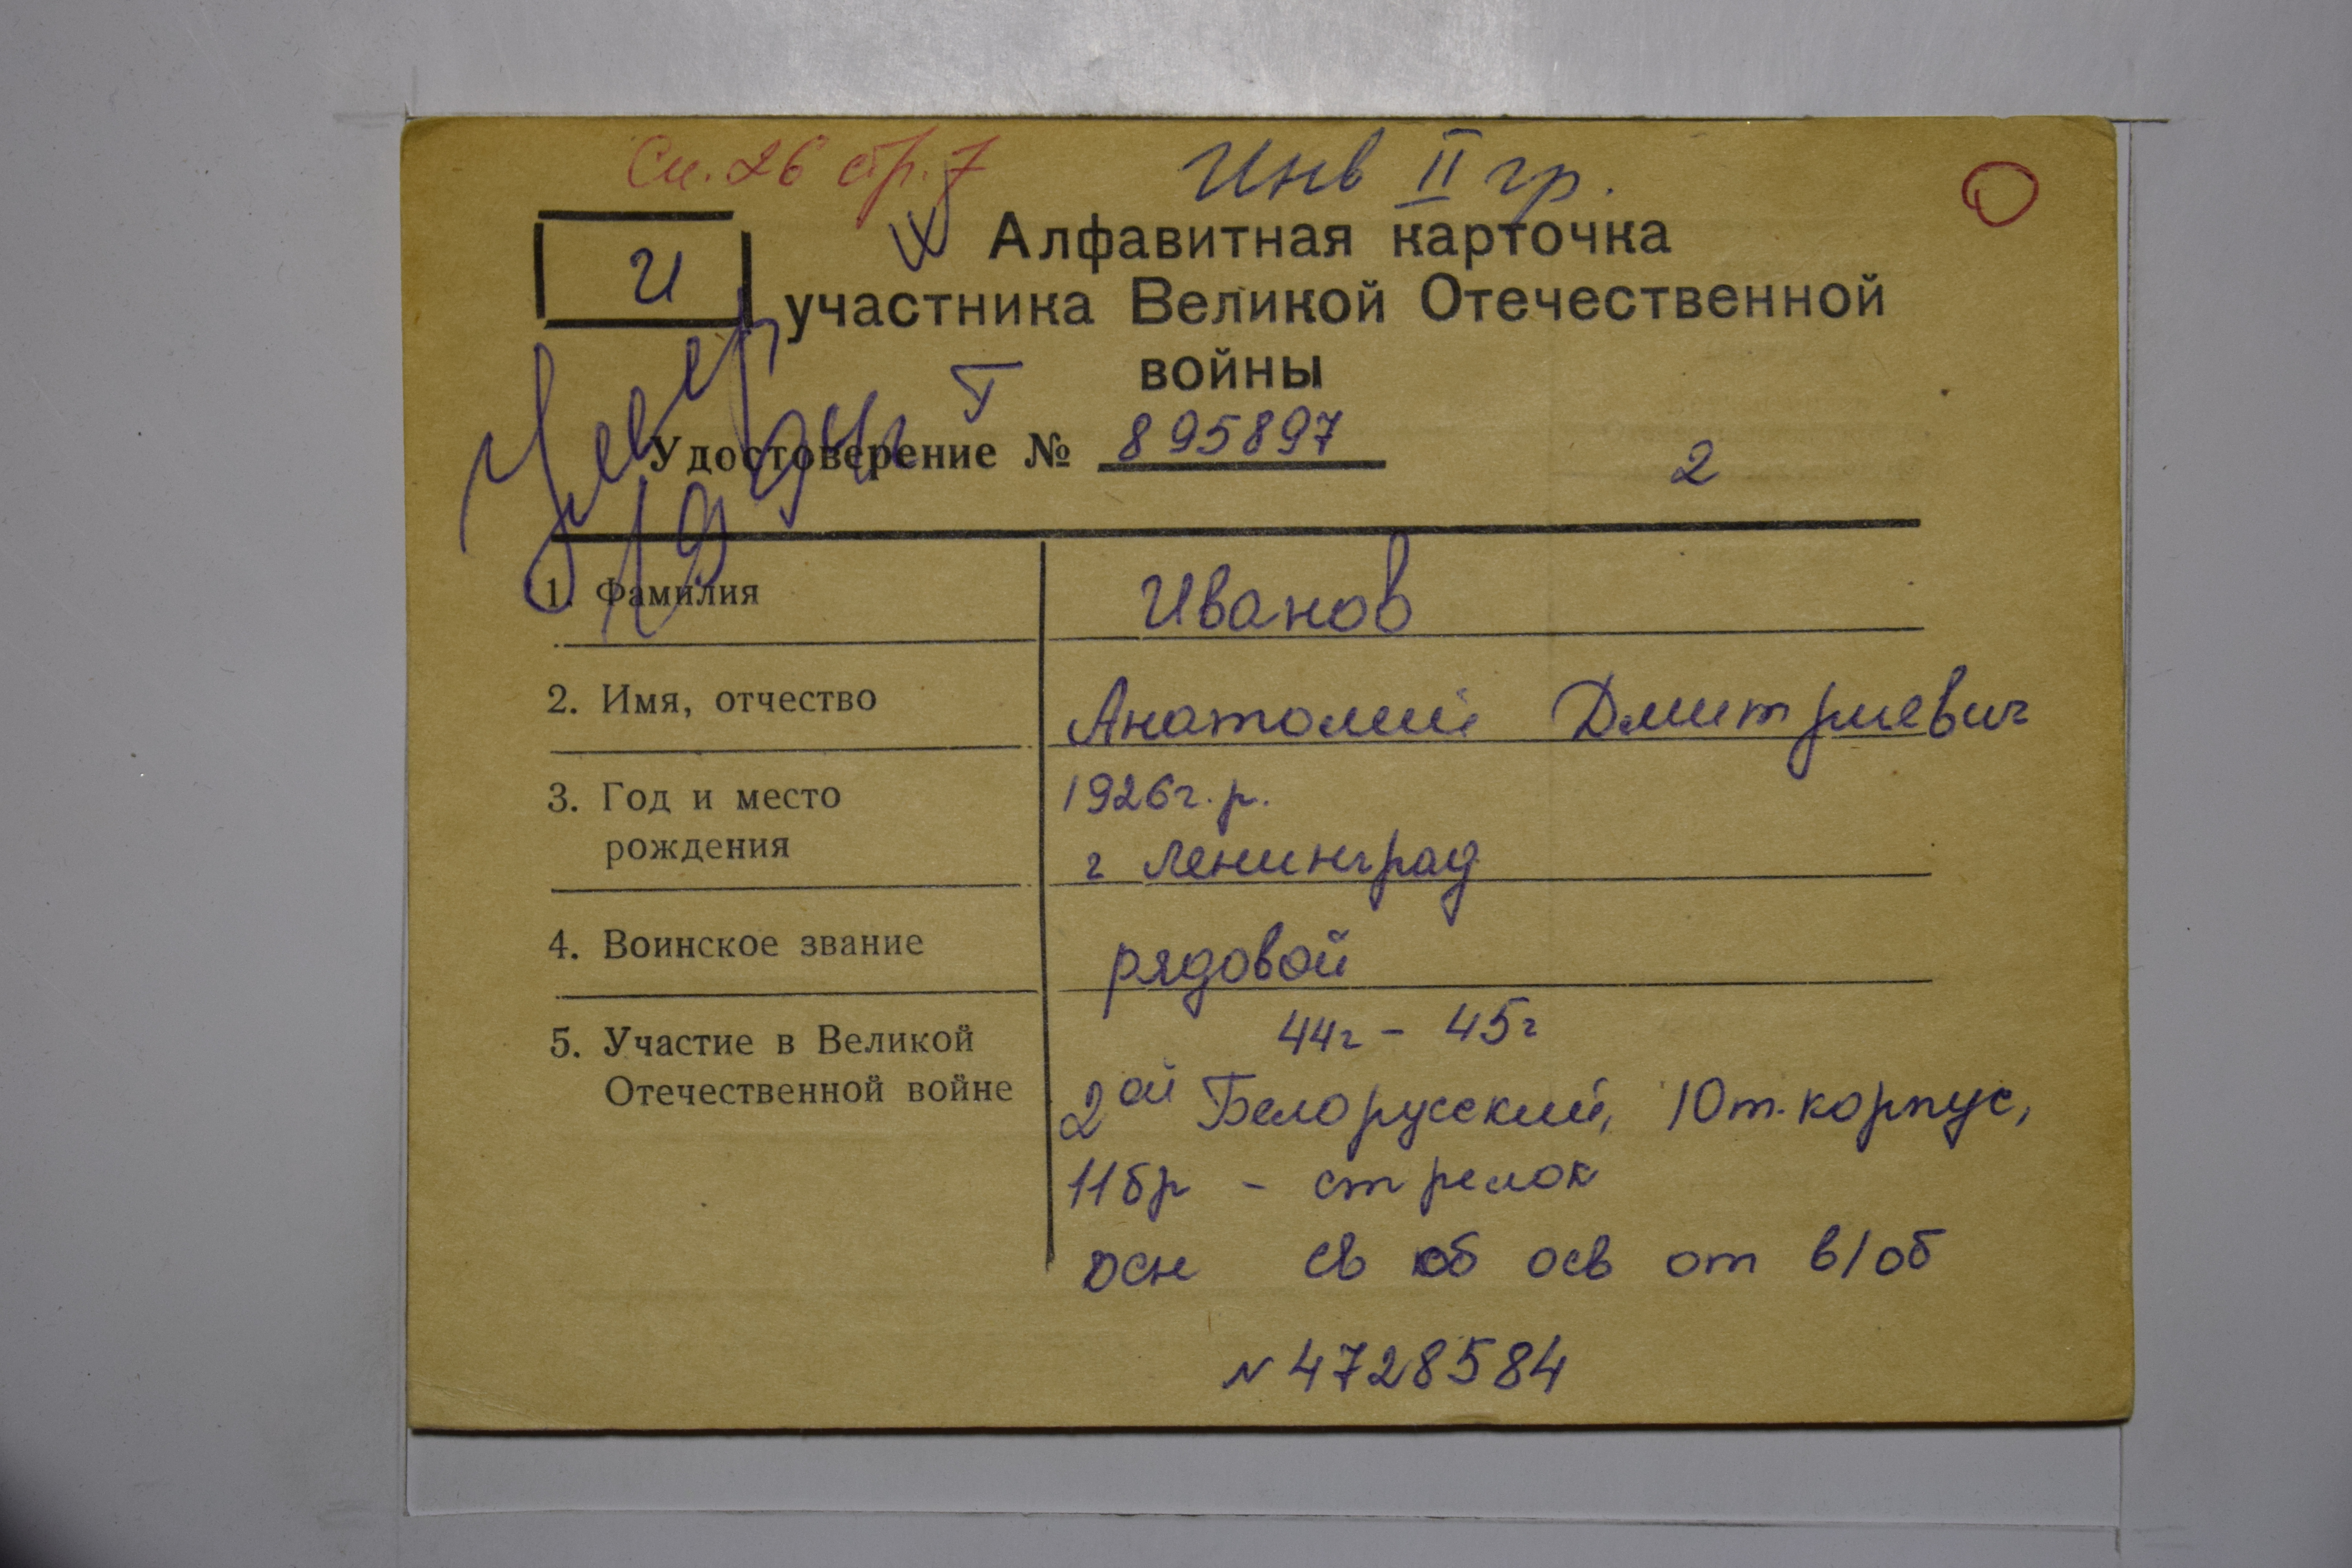 Сп. 26 стр. 7
Инв II гр.
И
Алфавитная карточка
участника Великой Отечественной
войны
Умер
Удостоверение № 895897
2
19
1. Фамилия Иванов
2. Имя, отчество Анатолий Дмитриевич
3. Год и место 1926 г. р.
рождения г Ленинград
4. Воинское звание рядовой
44г - 45г
5. Участие в Великой
Отечественной войне 2ой Белорусский, 10 т. корпус,
11 бр - стрелок
осн св об осв от в/об
№ 4728584